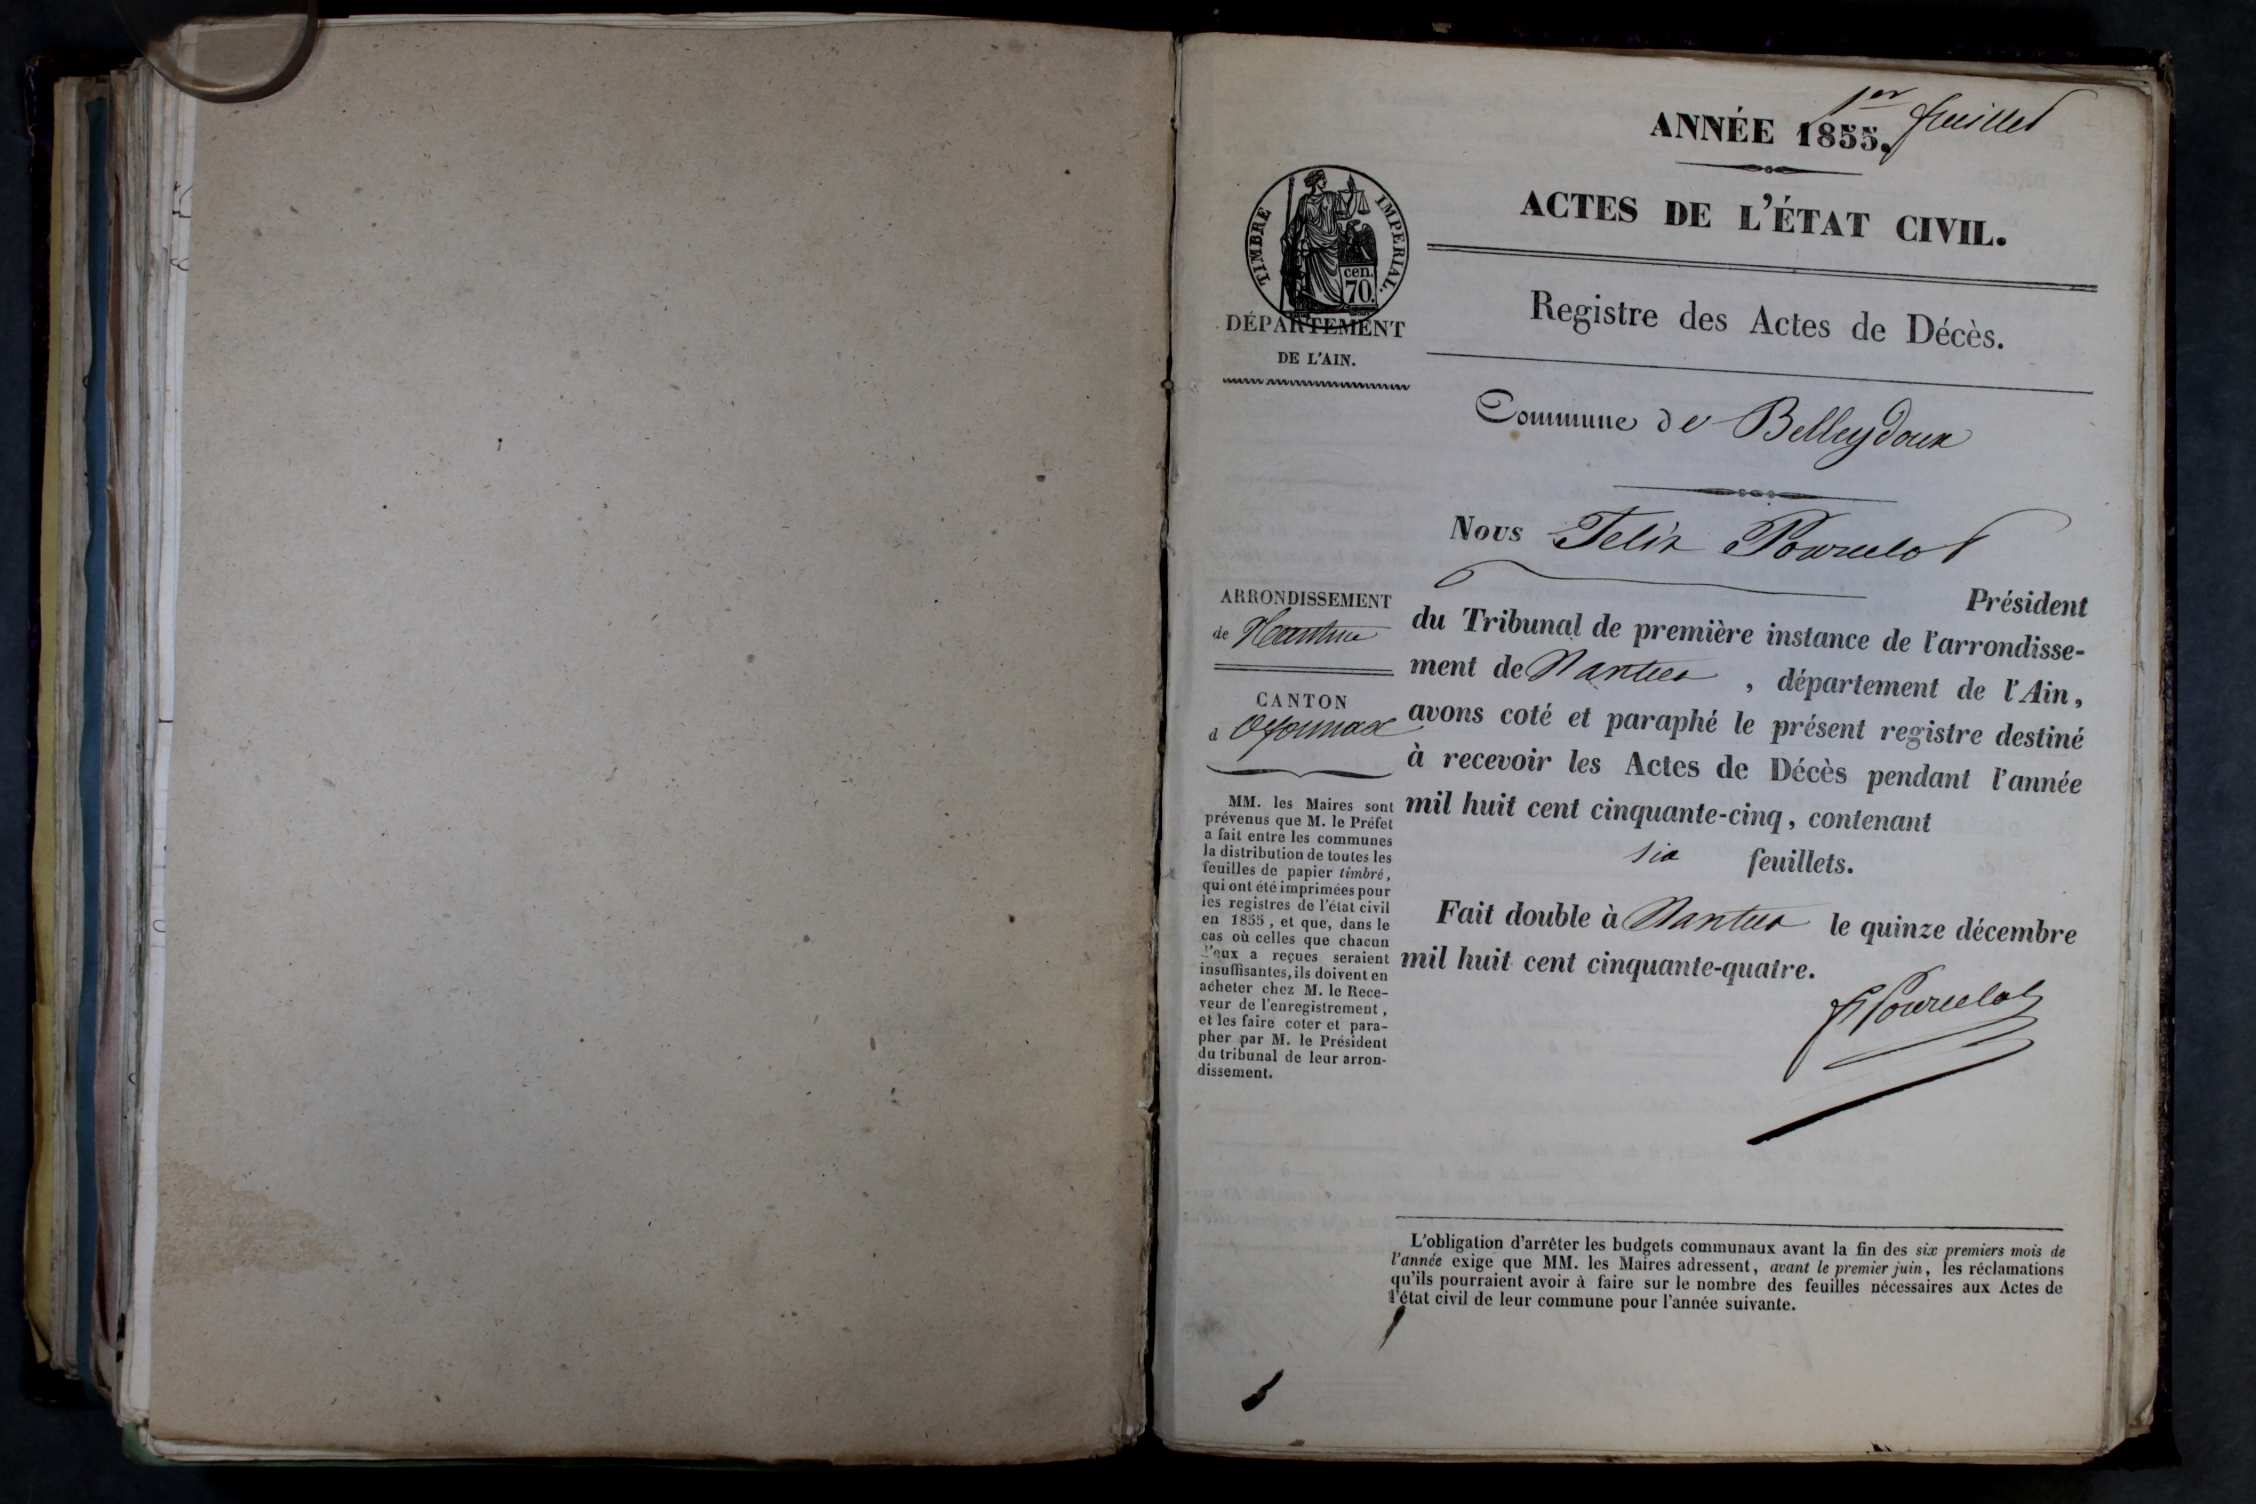 1er feuillet
ANNÉE 1855.
ACTES DE L'ÉTAT CIVIL.
Registre des Actes de Décès.
TIMBRE IMPERIAL.
cen.
70.
DÉPARTEMENT
DE L'AIN.
Commune de Belleydoux
Nous Felix Pourcelot
Président
du Tribunal de première instance de l'arrondisse-
ment de Nantua , département de l'Ain,
avons coté et paraphé le présent registre destiné
à recevoir les Actes de Décès pendant l'année
mil huit cent cinquante-cinq, contenant
six feuillets.
Fait double à Nantua le quinze décembre
mil huit cent cinquante-quatre.
F Pourcelot
ARRONDISSEMENT
de Nantua
CANTON
d Oyonnax
MM. les Maires sont
prévenus que M. le Préfet
a fait entre les communes
la distribution de toutes les
feuilles de papier timbré,
qui ont été imprimées pour
les registres de l'état civil
en 1855, et que, dans le
cas où celles que chacun
d'eux a reçues seraient
insuffisantes, ils doivent en
acheter chez M. le Rece-
veur de l'enregistrement,
et les faire coter et para-
pher par M. le Président
du tribunal de leur arron-
dissement.
L'obligation d'arrêter les budgets communaux avant la fin des six premiers mois de
l'année exige que MM. les Maires adressent, avant le premier juin, les réclamations
qu'ils pourraient avoir à faire sur le nombre des feuilles nécessaires aux Actes de
l'état civil de leur commune pour l'année suivante.